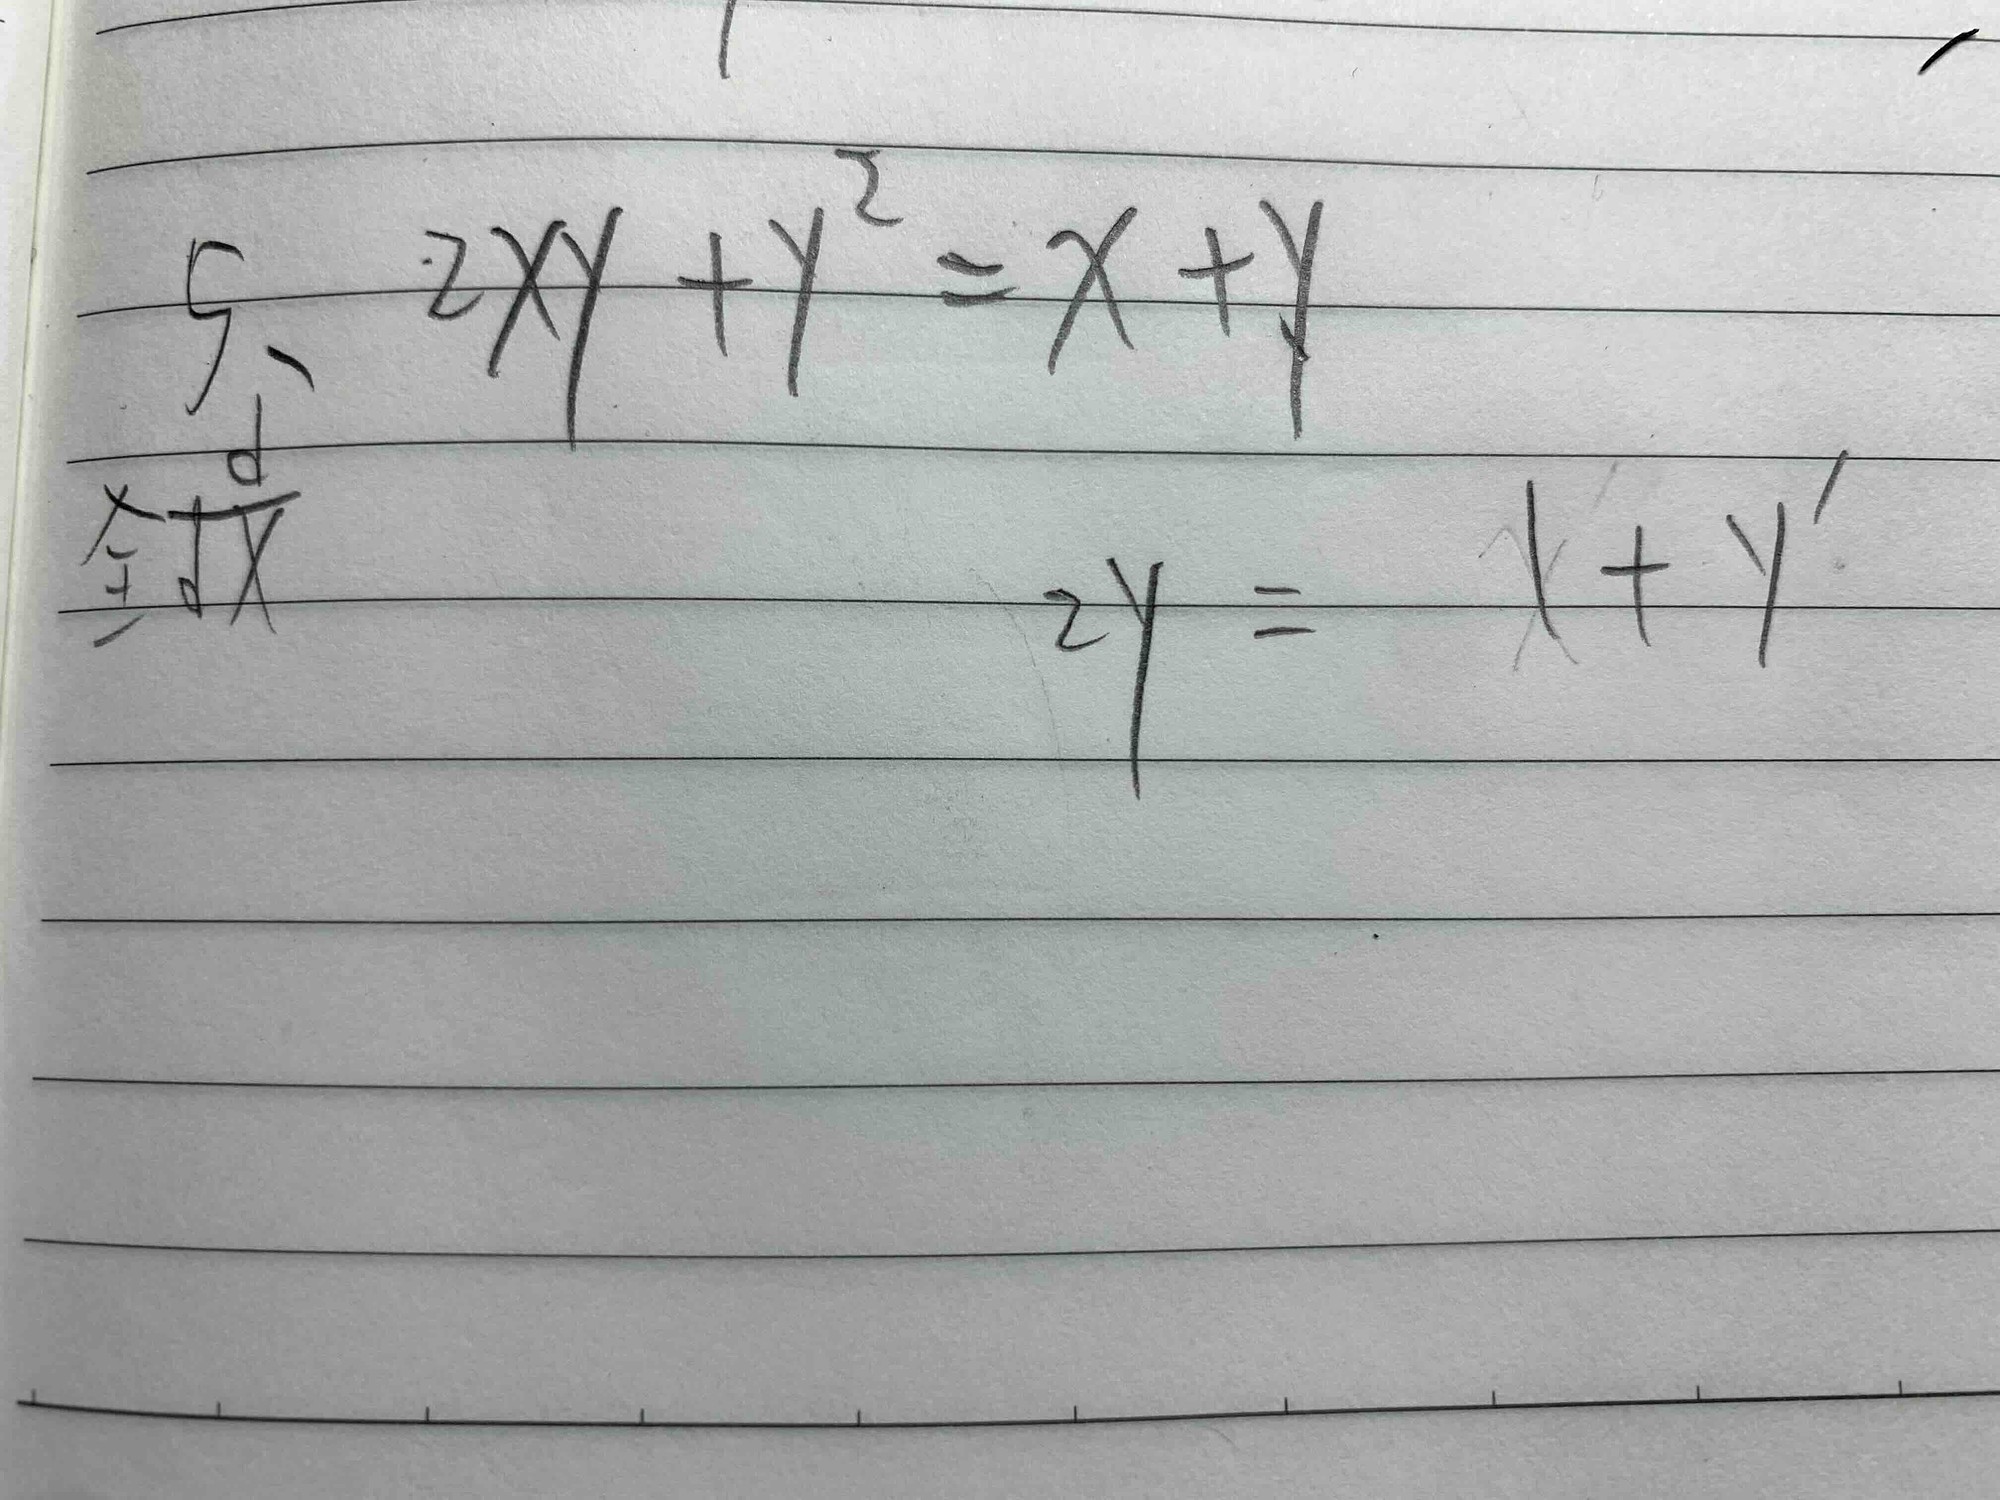 5、 2xy + y² = x + y
全 d/dx 2y = 1 + y'